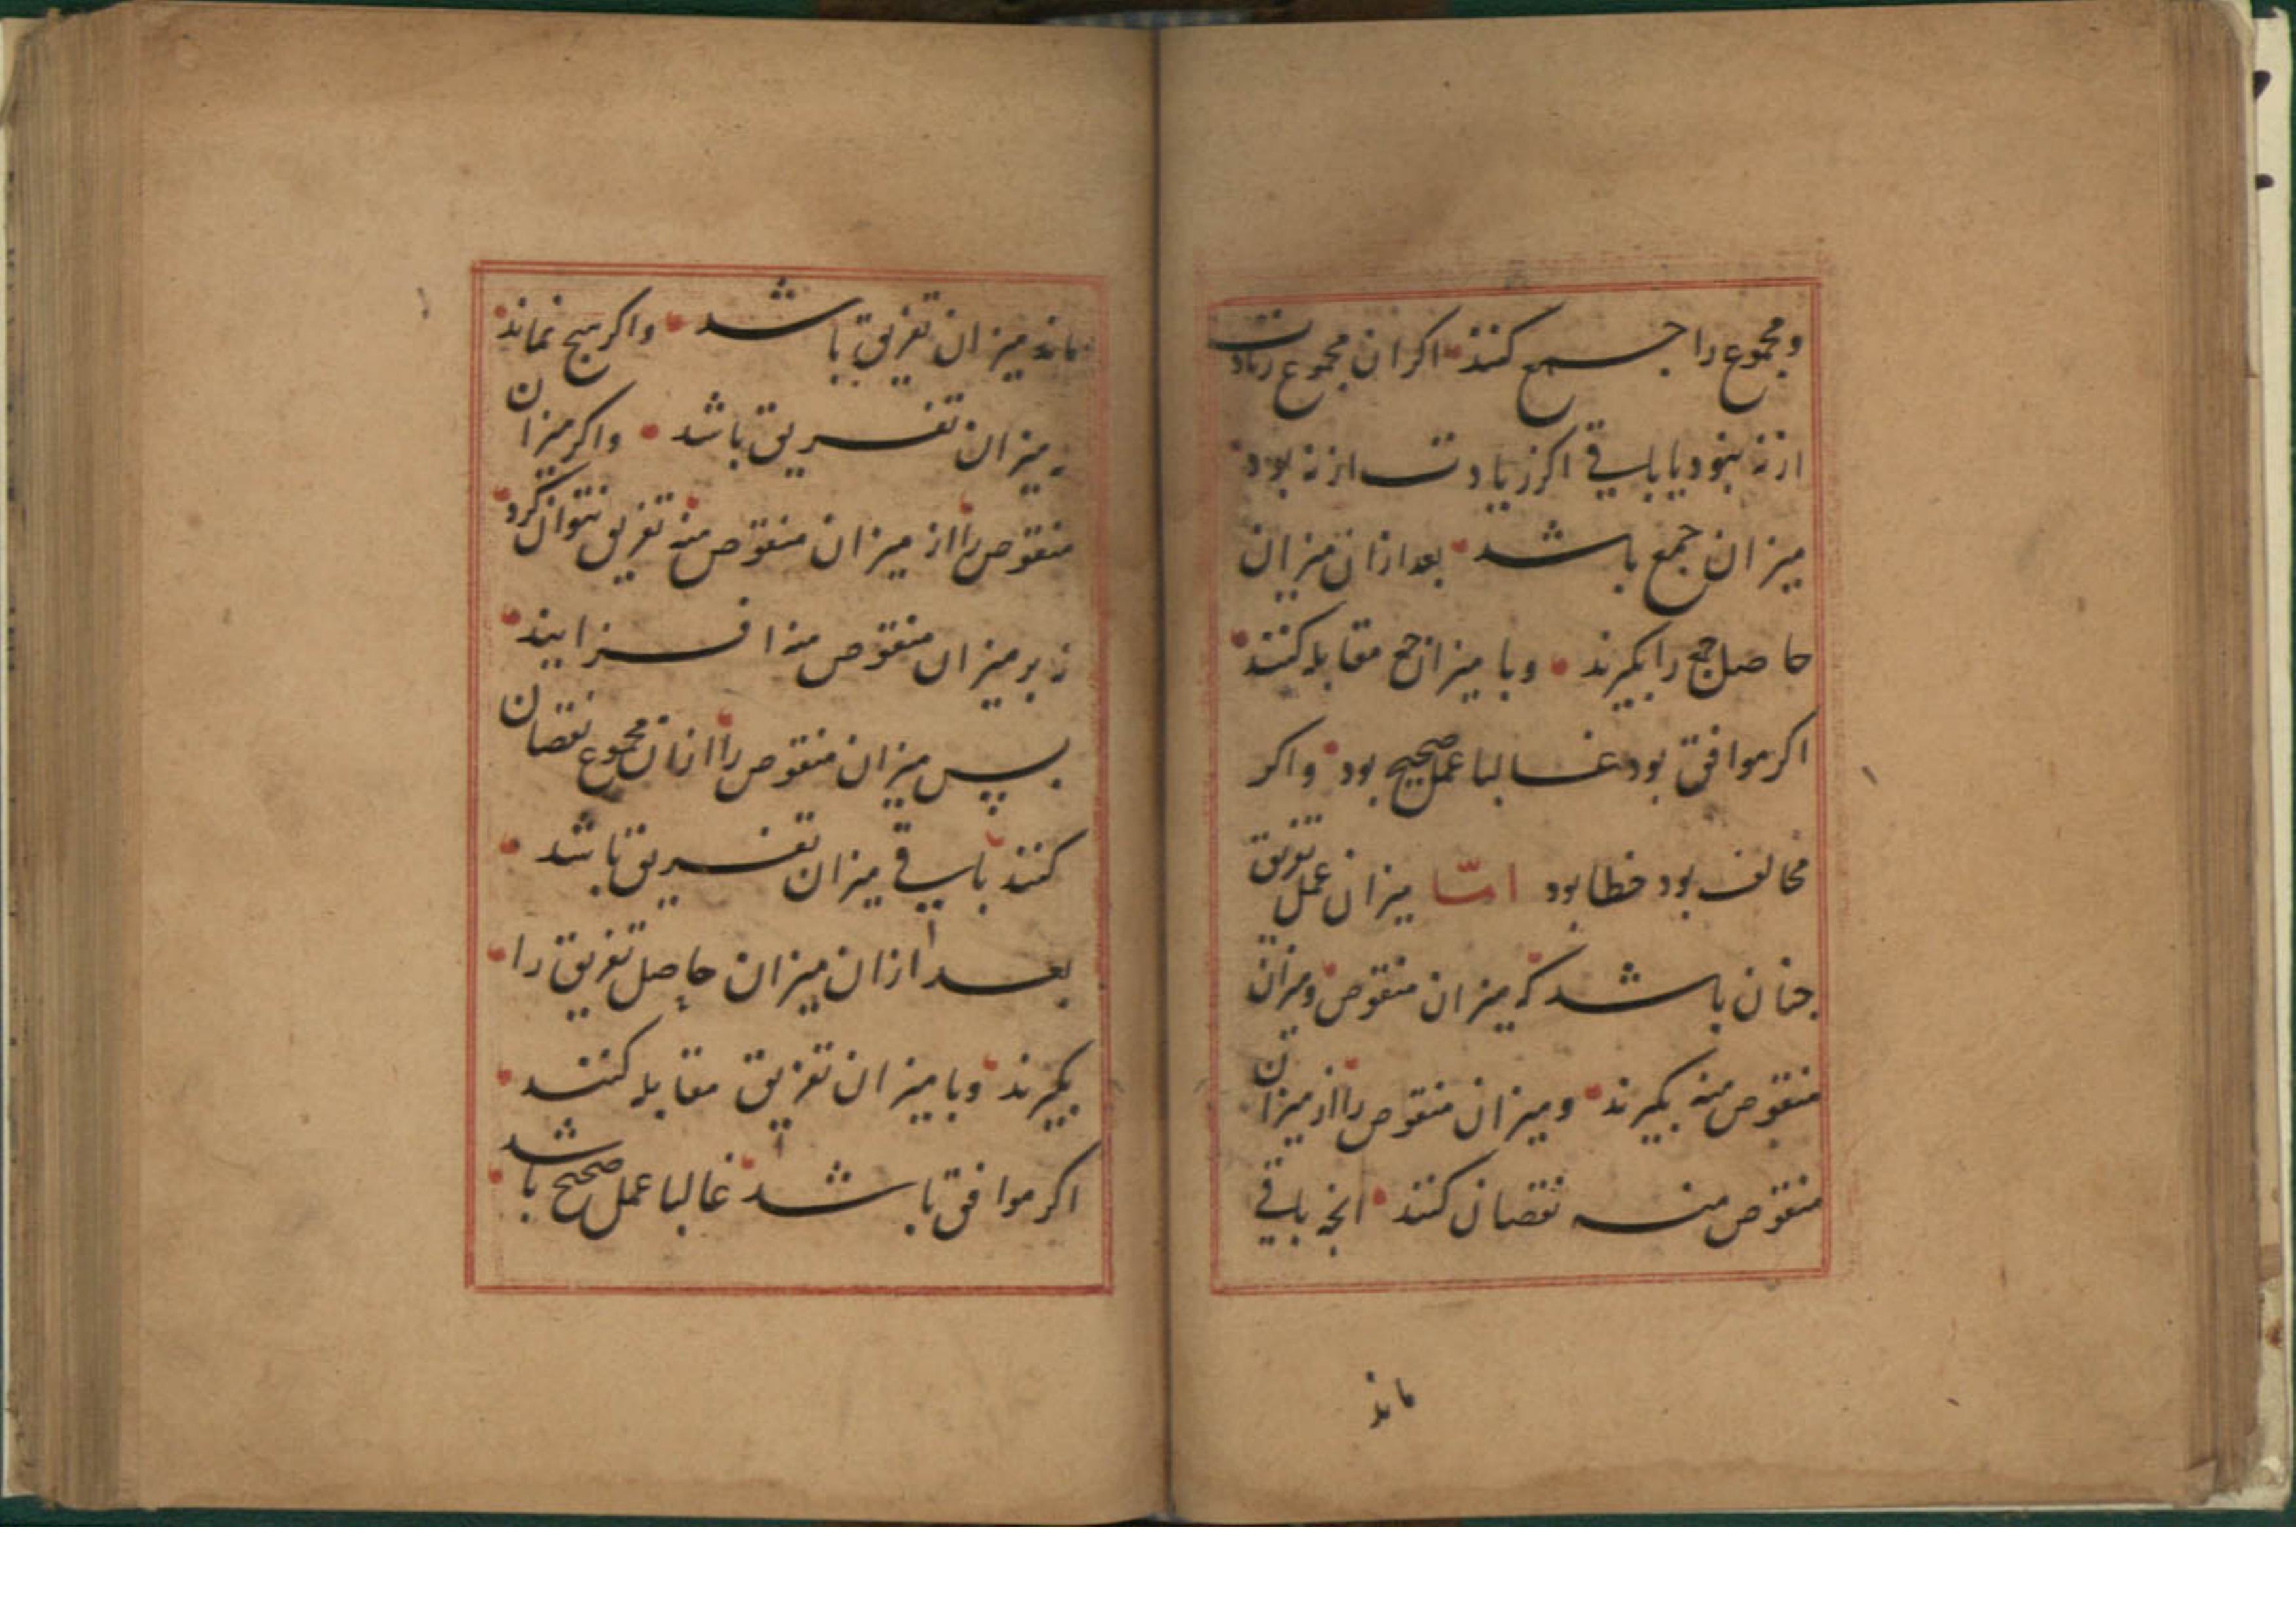 ومجموع را جمع کنند اکر ان مجموع زیادت
از نه نبود یا باقی اکر زیادت از نه بود
میزان جمع باشد بعد ازان میزان
حاصل جمع را بکیرند وبا میزان جمع مقابله کنند
اکر موافق بود غالبا عمل صحیح بود واکر
مخالف بود خطا بود امّا میزان عمل تفریق
جنان باشد که میزان منقوص ومیزان
منقوص منه بکیرند ومیزان منقوص را از میزان
منقوص منه نقصان کنند انجه باقی
ماند
ماند میزان تفریق باشد واکر هیج نماند
نه میزان تفریق باشد واکر میزان
منقوص را از میزان منقوص منه تفریق نتوان کرد
نه بر میزان منقوص منه افزایند
پس میزان منقوص را ازان مجموع نقصان
کنند باقی میزان تفریق باشد
بعد ازان میزان حاصل تفریق را
بکیرند وبا میزان تفریق مقابله کنند
اکر موافق باشد غالبا عمل صحیح باشد